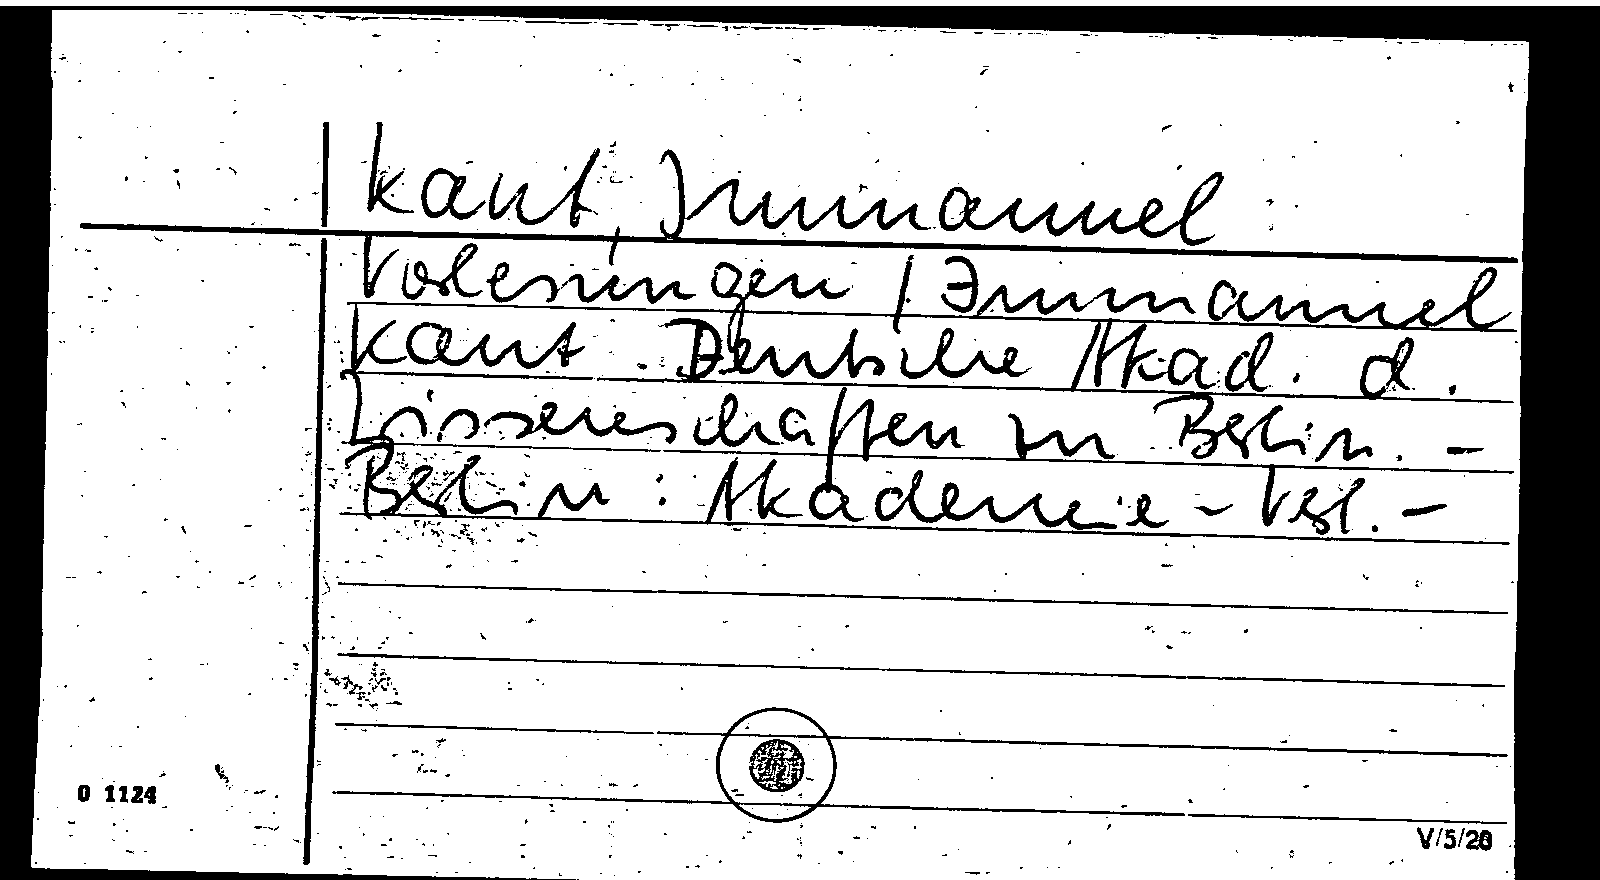 Kant, Immanuel
Vorlesungen / Immanuel
Kant. Deutsche Akad. d.
Wissenschaften zu Berlin. -
Berlin : Akademie-Verl. -
0 1124
V/5/20